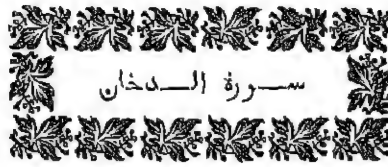 سورة الدخان